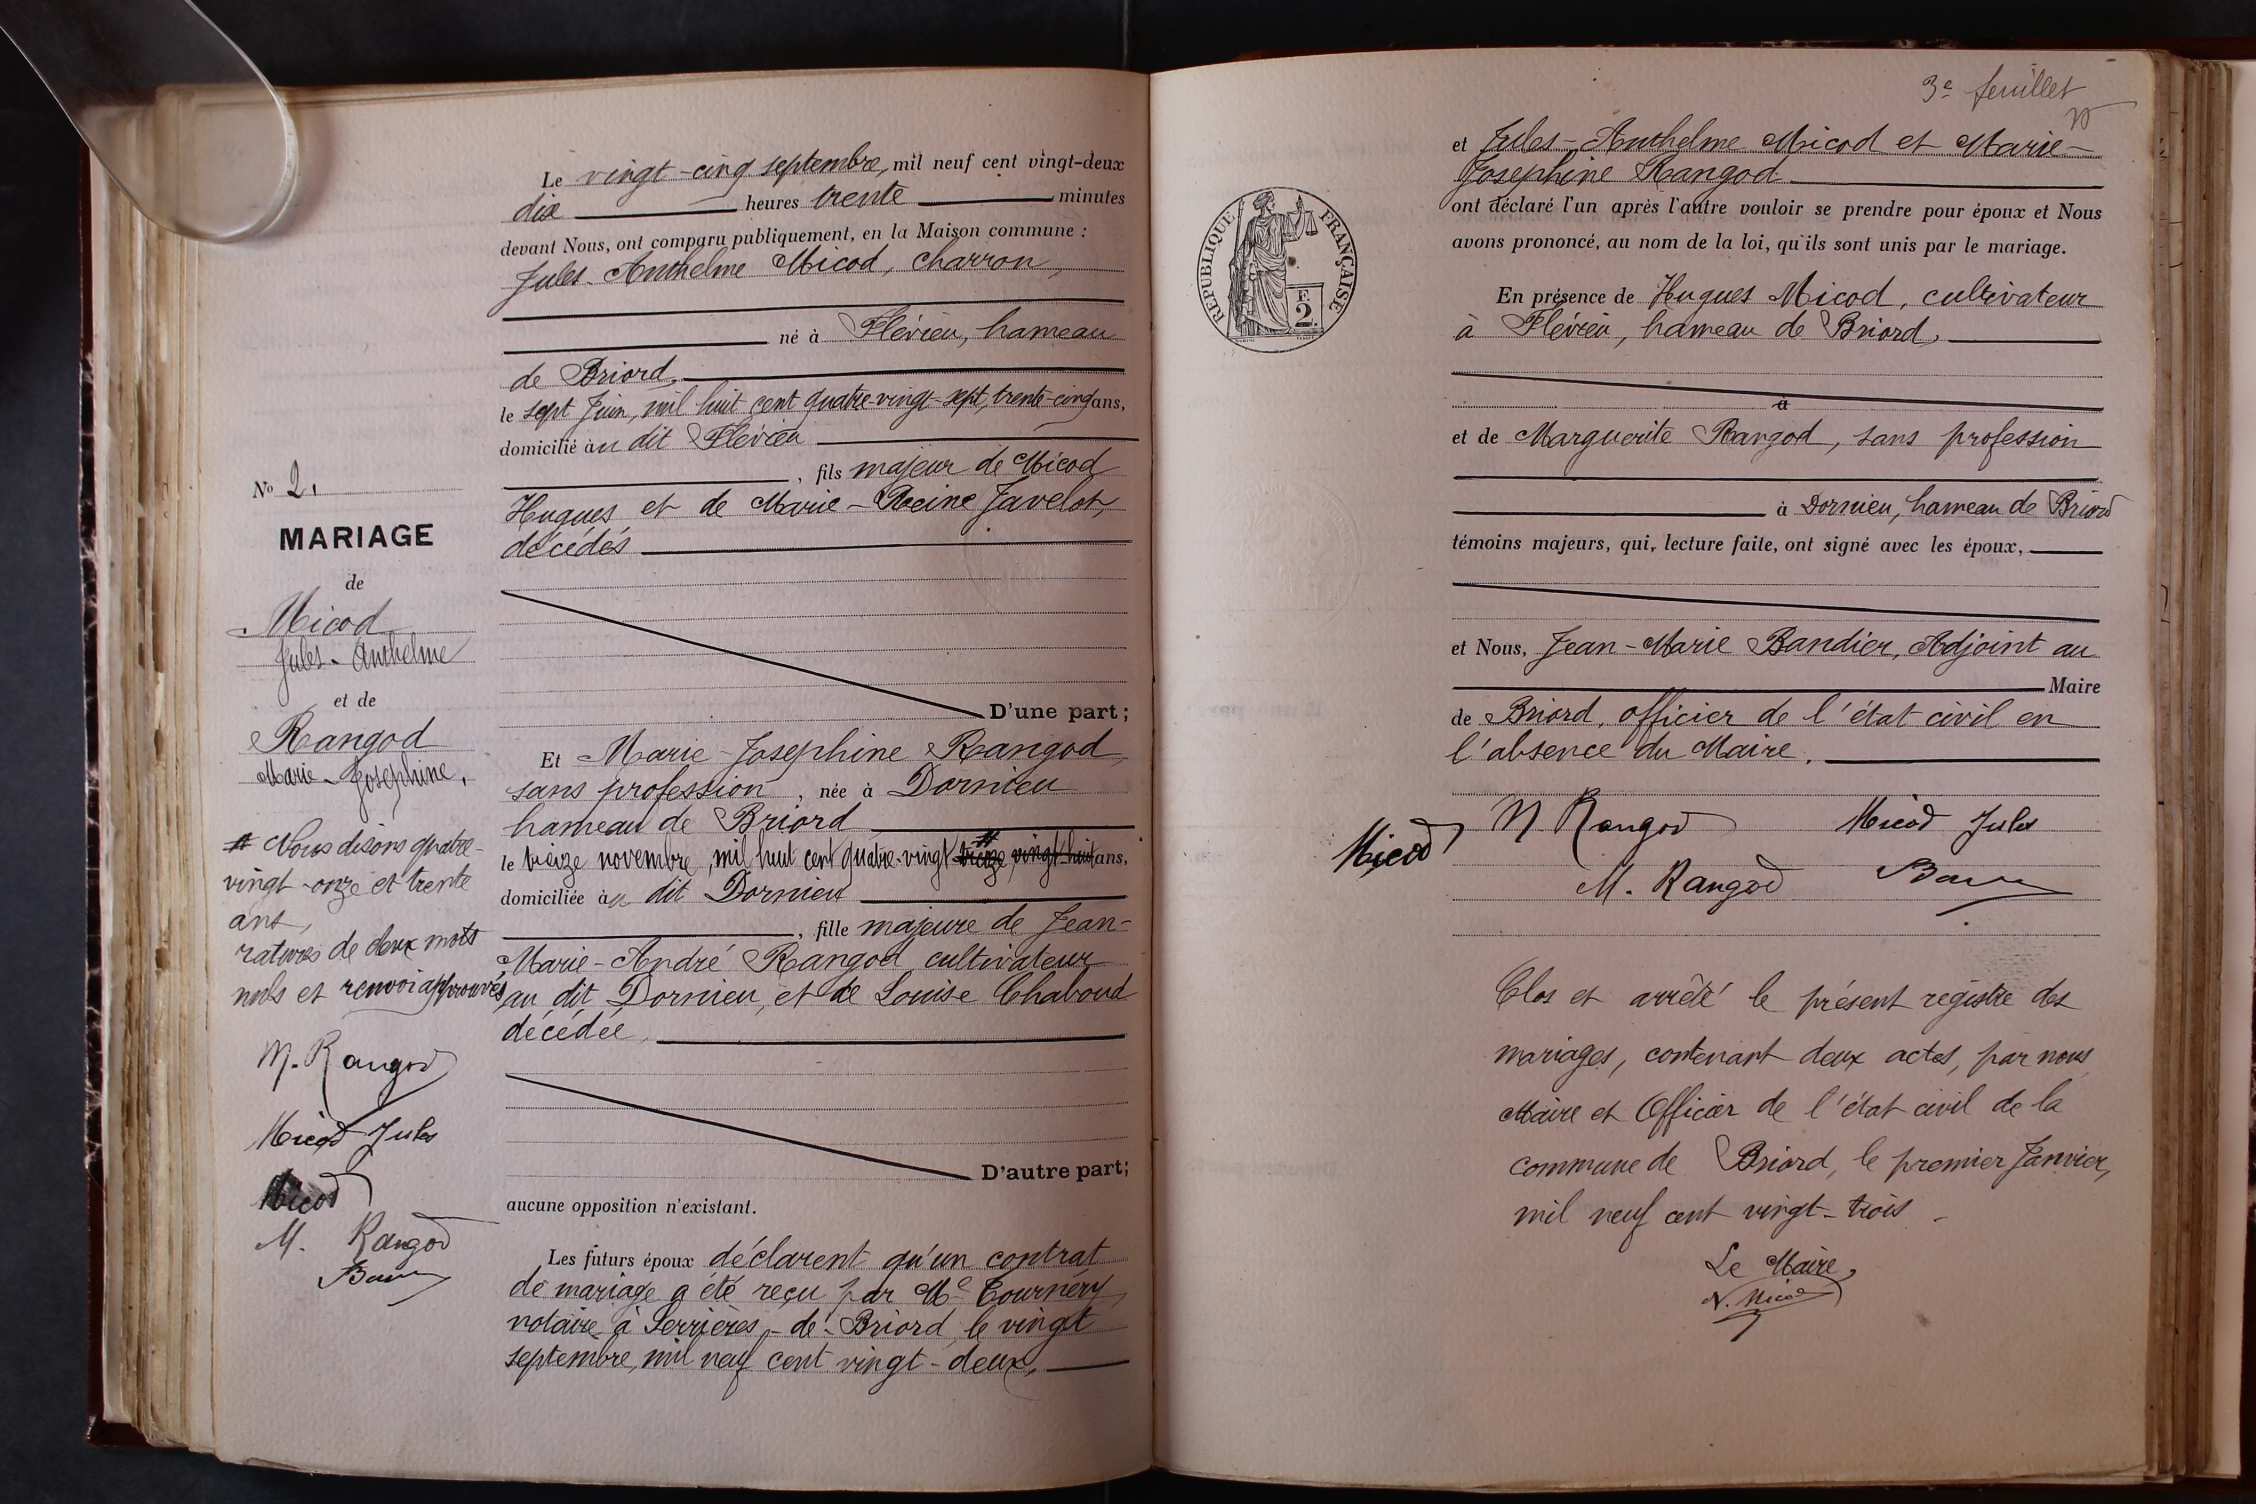 Le vingt-cinq septembre, mil neuf cent vingt-deux
dix heures trente minutes
devant Nous, ont comparu publiquement, en la Maison commune :
Jules-Anthelme Micod, charron,
né à Flévieu, hameau
de Briord,
le sept Juin, mil huit cent quatre-vingt-sept, trente-cinq ans,
domicilié au dit Flévieu
, fils majeur de Micod
Hugues et de Marie-Reine Javelot,
décédés
No 2.
MARIAGE
de
Micod
Jules-Anthelme
et de
Rangod
Marie-Josephine,
# Nous disons quatre-
vingt-onze et trente
ans,
ratures de deux mots
nuls et renvoi approuvés
M. Rangod
Micod Jules
Micod
M. Rangod
D'une part;
Et Marie-Josephine Rangod,
sans profession, née à Dornieu
hameau de Briord
#
le treize novembre, mil huit cent quatre-vingt treize vingt-huit ans,
domiciliée au dit Dornieu
, fille majeure de Jean-
Marie-André Rangod cultivateur
au dit Dornieu, et de Louise Chaboud
décédée
D'autre part;
aucune opposition n'existant.
Les futurs époux déclarent qu'un contrat
de mariage a été reçu par Me Tournéry,
notaire à Serrières-de-Briord le vingt
septembre, mil neuf cent vingt-deux,
3e feuillet
et Jules-Anthelme Micod et Marie-
Josephine Rangod
ont déclaré l'un après l'autre vouloir se prendre pour époux et Nous
avons prononcé, au nom de la loi, qu'ils sont unis par le mariage.
RÉPUBLIQUE FRANÇAISE
F.
2
En présence de Hugues Micod, cultivateur
à Flévieu, hameau de Briord,
à
et de Marguerite Rangod, sans profession
à Dornieu, hameau de Briord
témoins majeurs, qui, lecture faite, ont signé avec les époux,
et Nous, Jean-Marie Bandier, Adjoint au
Maire
de Briord, officier de l'état civil en
l'absence du Maire.
M Rangod Micod Jules
Micod
M. Rangod
Clos et arrêté le présent registre des
mariages, contenant deux actes, par nous
Maire et Officier de l'état civil de la
commune de Briord, le premier Janvier,
mil neuf cent vingt-trois
Le Maire,
N. Micod